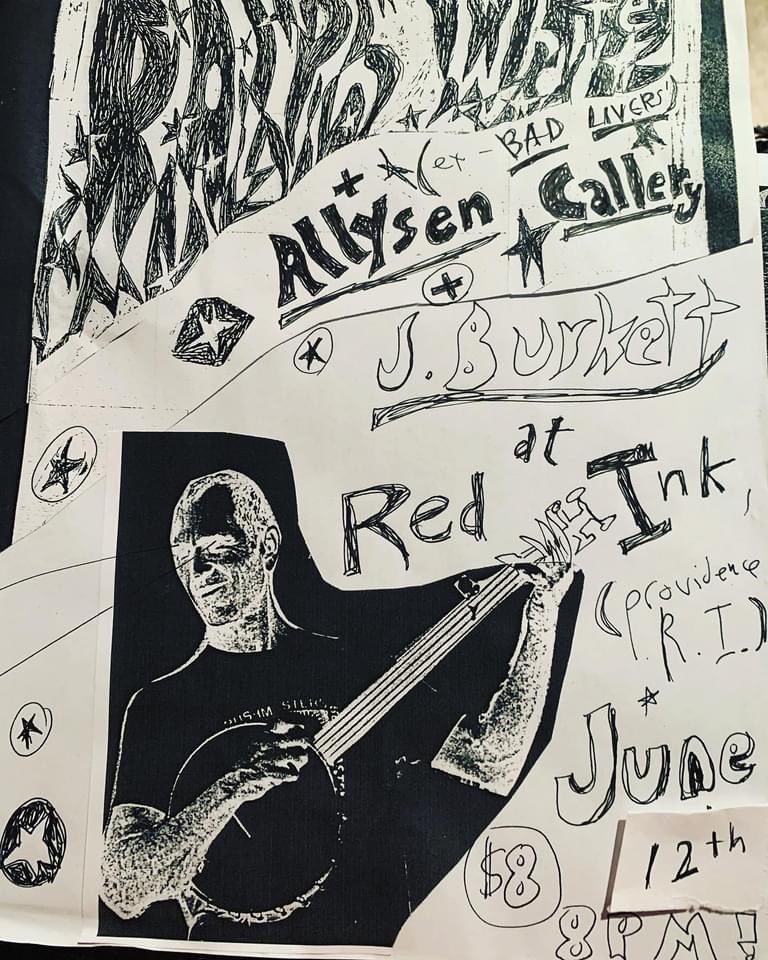 RALPH WHITE
(ex-BAD LIVERS)
+ Allysen Callery
+
J. Burkett
at
Red Ink,
(providence
R.I.)
June
12th
$8
8PM!